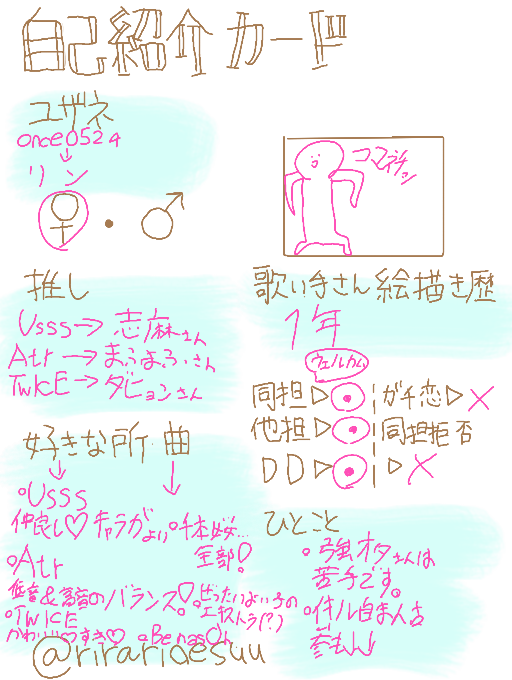 自己紹介カード
ユザネ
once0524
↓
リン
♀・♂
コマネチッ
推し
Usss→志麻さん
Atr→まふまふさん
TWICE→ダヒョンさん
歌い手さん絵描き歴
1年
ウェルカム
同担▷◉ ガチ恋▷×
他担▷◉ 同担拒否
DD▷◉ ▷×
好きな所・曲
↓ ↓
・Usss
仲良し♡キャラがよい
・千本桜…
全部!
・Atr
低音&高音のバランス!
・ぜったいよい子の
エキストラ(?)
・TWICE
かわいい♡すき♡
ひとこと
・強オタさんは
苦手です。
@riraridesuu